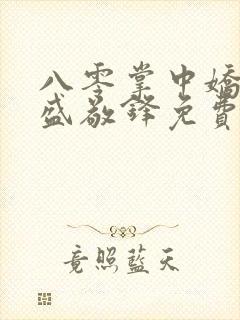 八零掌中嬌
盛敬鋒免費
竟照藍天